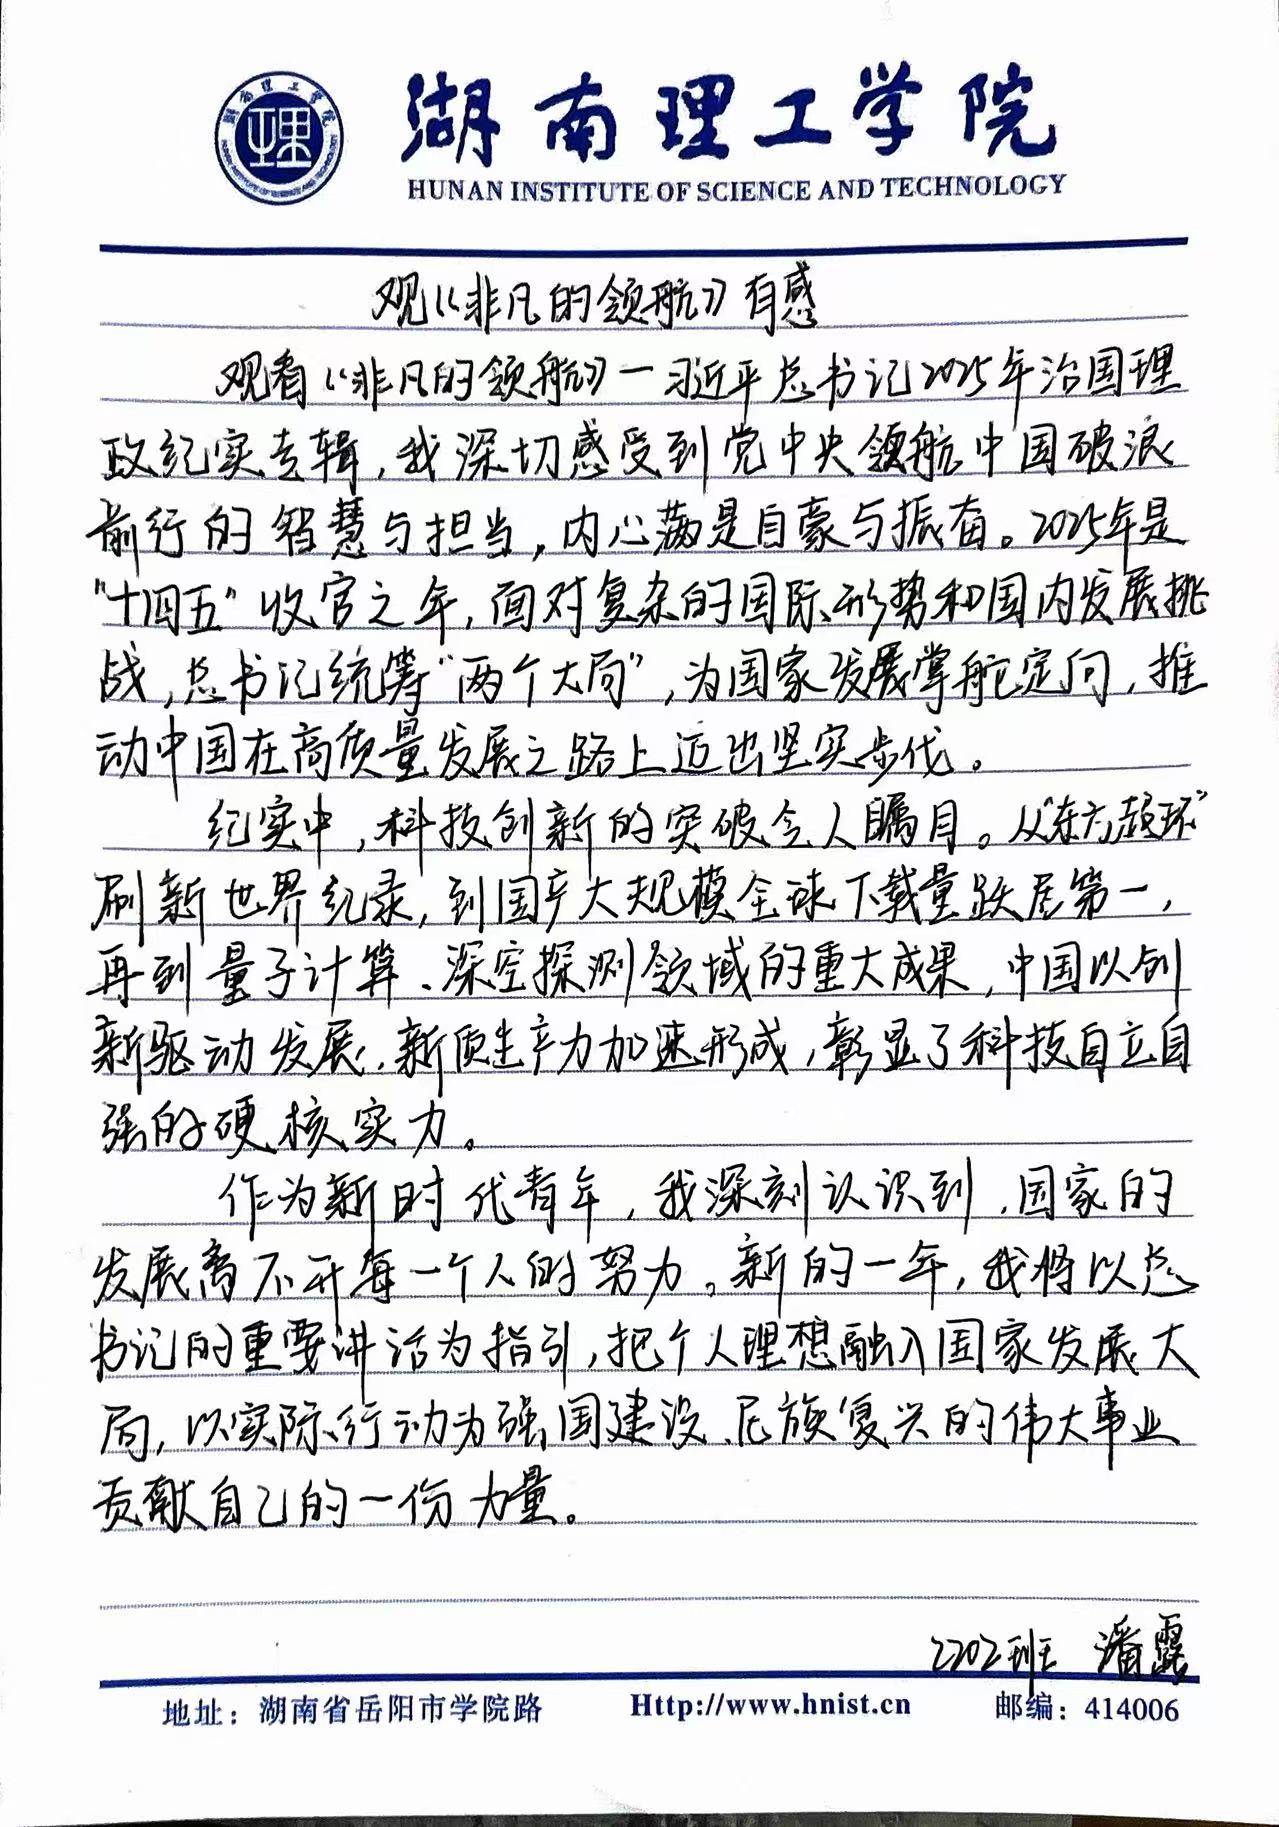 湖南理工学院
HUNAN INSTITUTE OF SCIENCE AND TECHNOLOGY
观《非凡的领航》有感
观看《非凡的领航》—习近平总书记2025年治国理
政纪实专辑,我深切感受到党中央领航中国破浪
前行的智慧与担当,内心满是自豪与振奋。2025年是
"十四五"收官之年,面对复杂的国际形势和国内发展挑
战,总书记统筹"两个大局",为国家发展掌舵定向,推
动中国在高质量发展之路上迈出坚实步伐。
纪实中,科技创新的突破令人瞩目。从"东方超环"
刷新世界纪录,到国产大规模全球下载量跃居第一,
再到量子计算、深空探测领域的重大成果,中国以创
新驱动发展,新质生产力加速形成,彰显了科技自立自
强的硬核实力。
作为新时代青年,我深刻认识到,国家的
发展离不开每一个人的努力。新的一年,我将以总
书记的重要讲话为指引,把个人理想融入国家发展大
局,以实际行动为强国建设、民族复兴的伟大事业
贡献自己的一份力量。
2202班 潘露
地址:湖南省岳阳市学院路 Http://www.hnist.cn 邮编:414006